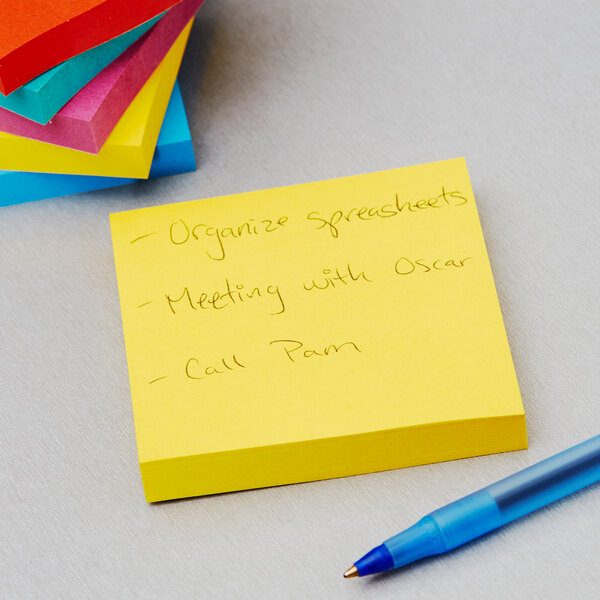 - Organize spreasheets
- Meeting with Oscar
- Call Pam